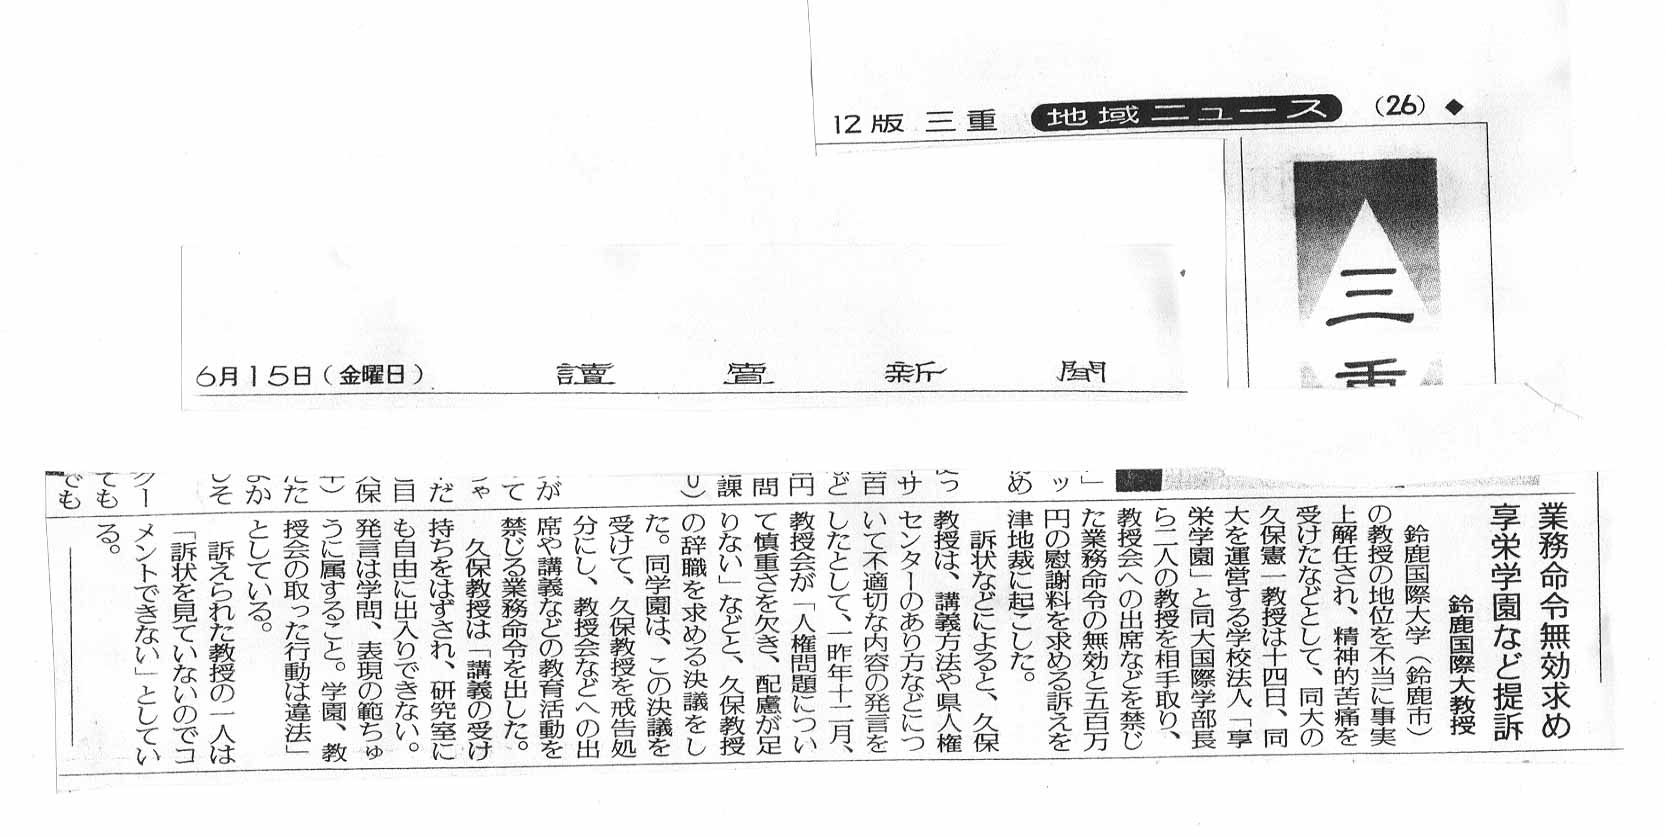 12版 三重 地域ニュース (26) ◆
三重
6月15日(金曜日) 讀賣新聞
業務命令無効求め
享栄学園など提訴
鈴鹿国際大教授
鈴鹿国際大学(鈴鹿市)
の教授の地位を不当に事実
上解任され、精神的苦痛を
受けたなどとして、同大の
久保憲一教授は十四日、同
大を運営する学校法人「享
栄学園」と同大国際学部長
ら二人の教授を相手取り、
教授会への出席などを禁じ
た業務命令の無効と五百万
円の慰謝料を求める訴えを
津地裁に起こした。
訴状などによると、久保
教授は、講義方法や県人権
センターのあり方などにつ
いて不適切な内容の発言を
したとして、一昨年十二月、
教授会が「人権問題につい
て慎重さを欠き、配慮が足
りない」などと、久保教授
の辞職を求める決議をし
た。同学園は、この決議を
受けて、久保教授を戒告処
分にし、教授会などへの出
席や講義などの教育活動を
禁じる業務命令を出した。
久保教授は「講義の受け
持ちをはずされ、研究室に
も自由に出入りできない。
発言は学問、表現の範ちゅ
うに属すること。学園、教
授会の取った行動は違法」
としている。
訴えられた教授の一人は
「訴状を見ていないのでコ
メントできない」としてい
る。